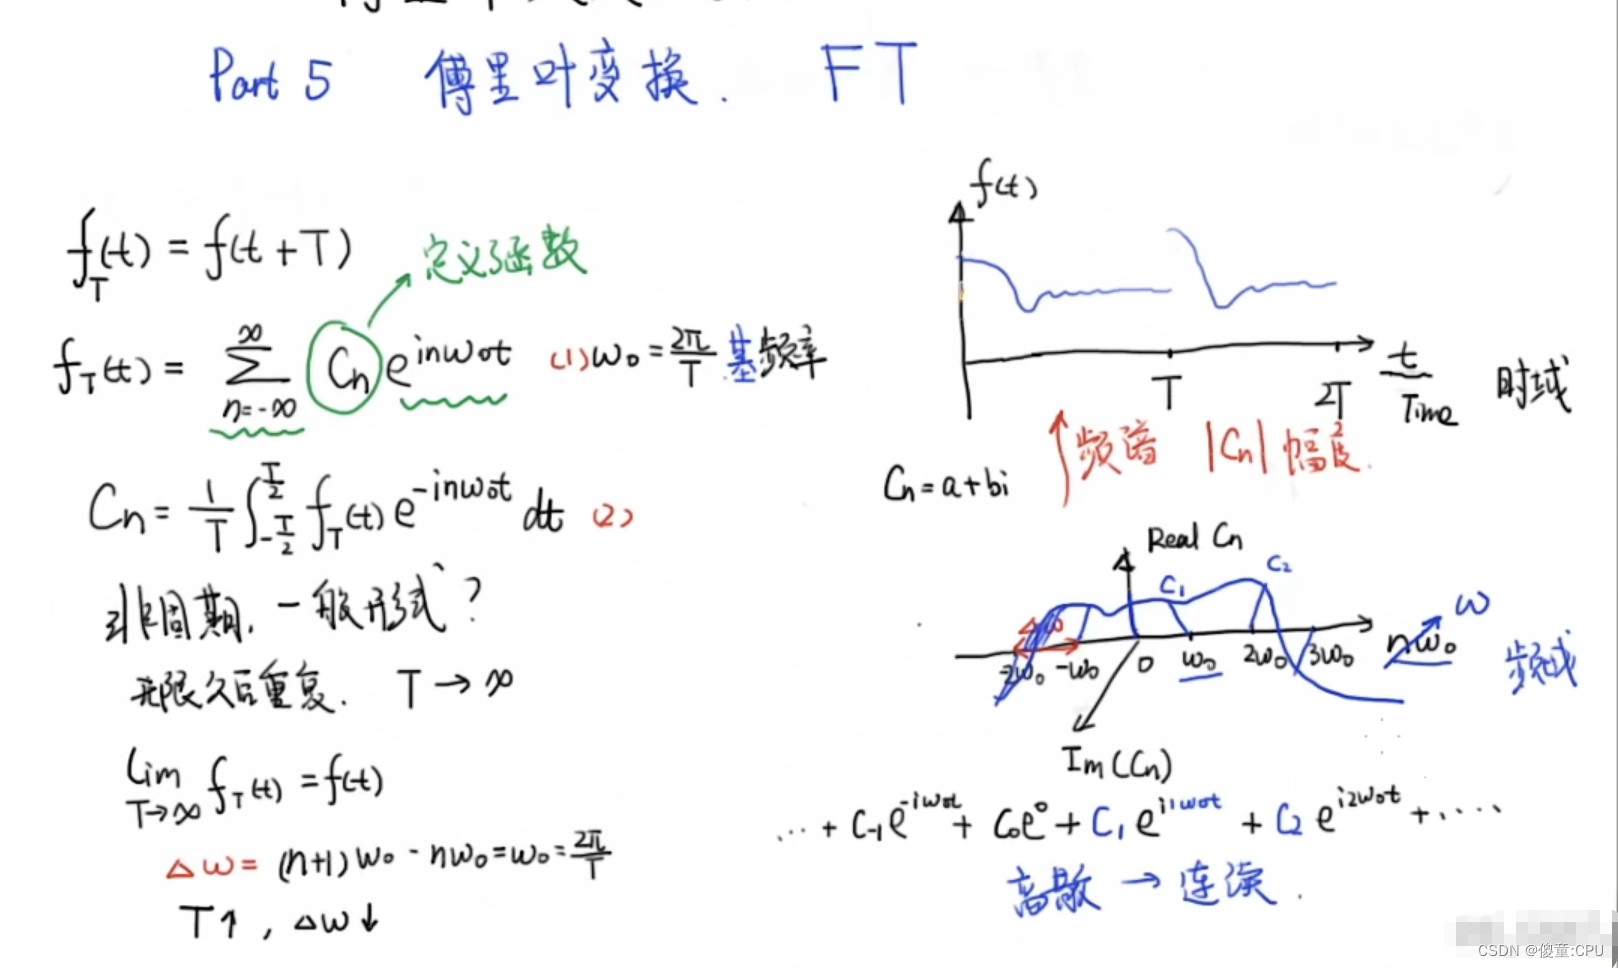 Part 5 傅里叶变换. FT
f_T(t) = f(t+T)
定义函数
f_T(t) = ∑_{n=-∞}^{∞} Cn e^{inω₀t} (1) ω₀ = 2π/T 基频率
Cn = 1/T ∫_{-T/2}^{T/2} f_T(t) e^{-inω₀t} dt (2)
非周期, 一般形式?
无限久后重复. T → ∞
Lim_{T→∞} f_T(t) = f(t)
Δω = (n+1)ω₀ - nω₀ = ω₀ = 2π/T
T↑, Δω↓
f(t)
T 2T t
Time
时域
频谱 |Cn| 幅度.
Cn = a+bi
Real Cn
C₁ C₂
Δω
-2ω₀ -ω₀ 0 ω₀ 2ω₀ 3ω₀ nω₀ ω
频域
Im(Cn)
... + C₋₁e^{-iω₀t} + C₀e⁰ + C₁e^{i1ω₀t} + C₂e^{i2ω₀t} + ....
离散 → 连续.
CSDN @傻童:CPU